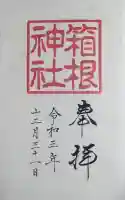 箱根
神社
奉拝
令和三年
十二月三十一日